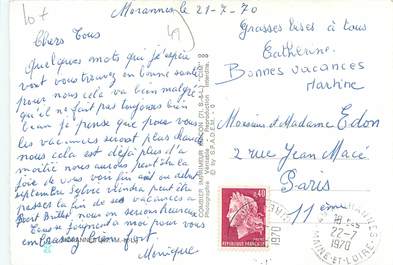 10 F
49
Morannes le 21-7-70
Chers Tous
Quelques mots qui j'espère
vont vous trouvez en bonne santé
pour nous cela va bien malgré
qu'il ne fait pas toujours bien
beau je pense que pour vous
les vacances seront plus chaude
nous cela est déjà plus d'a
moitié nous aurons peut-être la
joie de vous voir fin août ou début
septembre Sylvie viendra peut être
passer la fin de ses vacances à
nous en serons heureux
Tous se joignent à moi pour vous
embrasser bien fort.
Monique
Grosses bises à tous
Catherine.
Bonnes vacances
Martine
Monsieur et Madame Edon
2 rue Jean Macé
Paris
11ème
COMBIER IMPRIMEUR MACON (S.-&-L.) "CIM"
Photographie véritable - Reproduction interdite.
© by S.P.A.D.E.M.
0,40
REPUBLIQUE FRANÇAISE
MORANNES
18H45
22-7
1970
MAINE-ET-LOIRE
1970